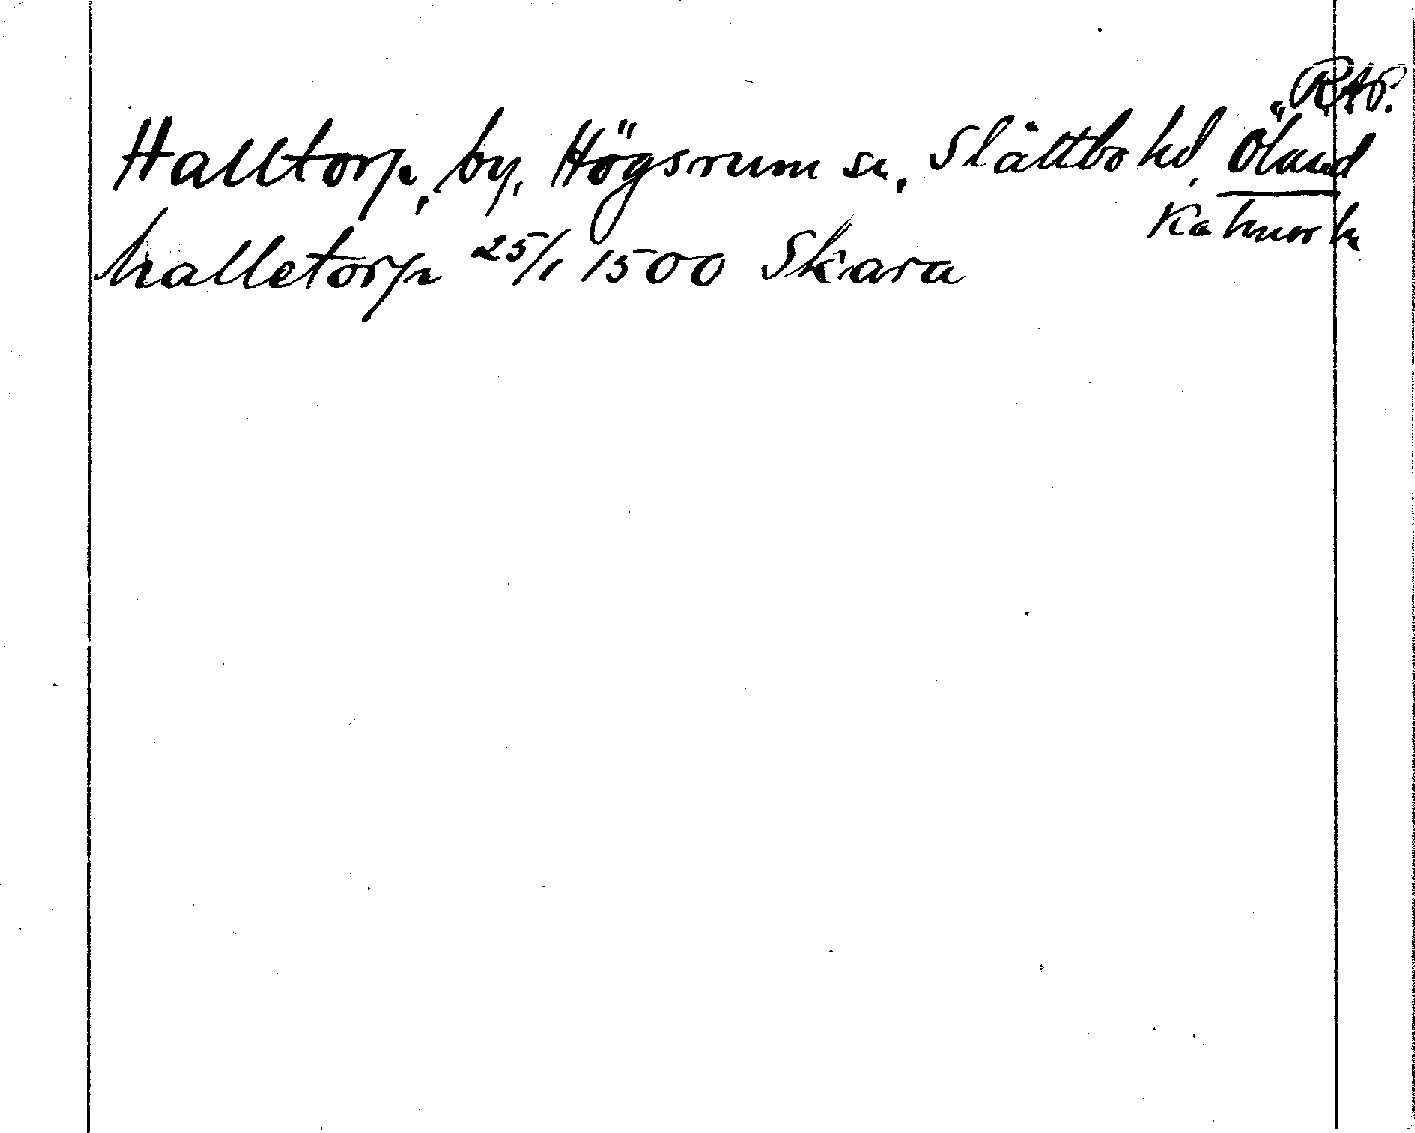 RAP.
Halltorp, by, Högsrum sn, Slättbo hd, Öland
Kalmar ln
halletorp 25/1 1500 Skara